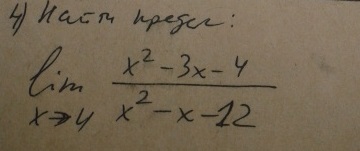 4) Найти предел:
lim x→4 (x² - 3x - 4) / (x² - x - 12)